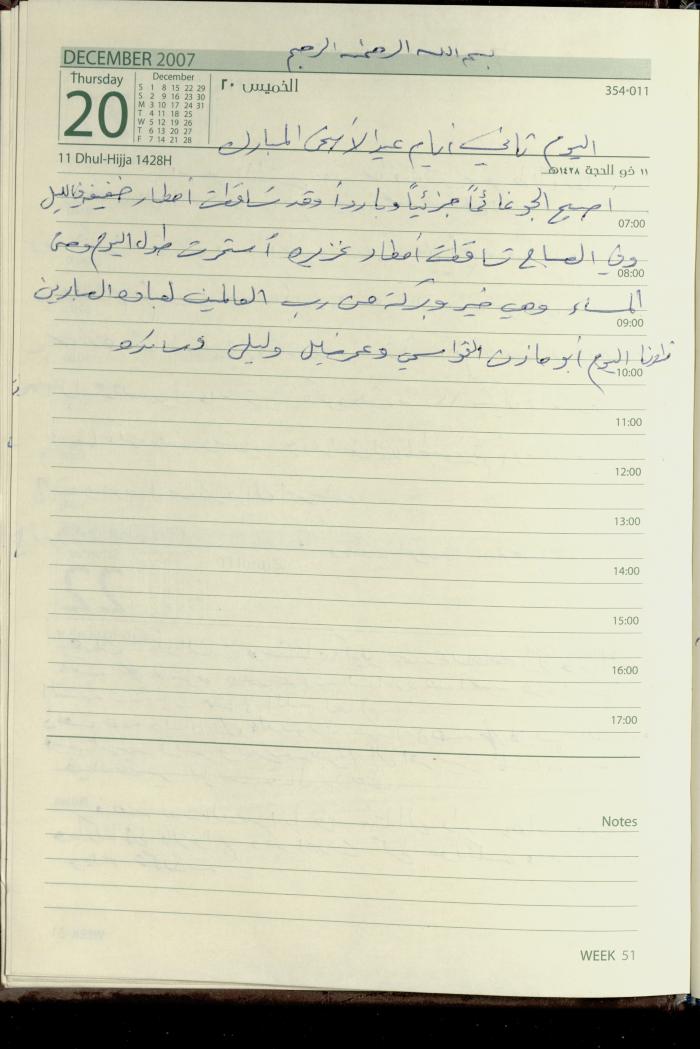 بسم الله الرحمن الرحيم
DECEMBER 2007
Thursday
20
December
S 1 8 15 22 29
S 2 9 16 23 30
M 3 10 17 24 31
T 4 11 18 25
W 5 12 19 26
T 6 13 20 27
F 7 14 21 28
الخميس ٢٠
354-011
اليوم ثاني أيام عيد الأضحى المبارك
11 Dhul-Hijja 1428H
١١ ذو الحجة ١٤٢٨هـ
أصبح الجو غائماً جزئياً وبارداً وقد تساقطت أمطار خفيفة في الليل
07:00
وفي الصباح تساقطت أمطار غزيرة أستمرت طول اليوم وحتى
08:00
المساء وهي خير وبركة من رب العالمين لعباده الصابرين
09:00
زارنا اليوم أبو مازن القواسمي وعمر
10:00
11:00
12:00
13:00
14:00
15:00
16:00
17:00
Notes
WEEK 51